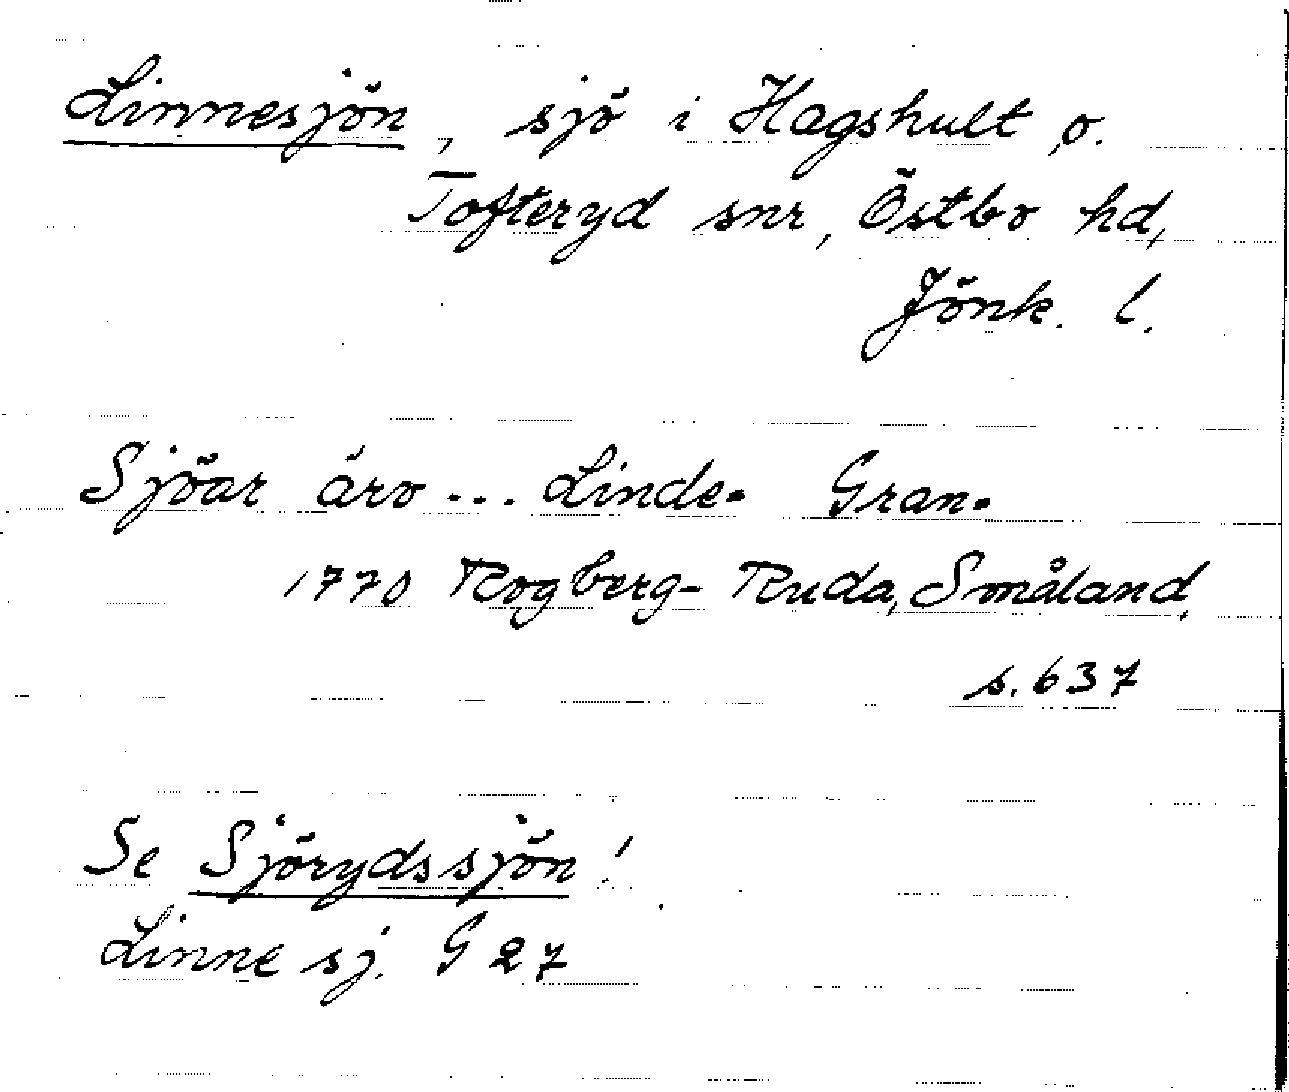 Linnesjön, sjö i Hagshult o.
Tofteryd snr, Östbo hd,
Jönk. l.
Sjöar äro... Linde- Gran-
1770 Rogberg-Ruda, Småland,
s. 637
Se Sjörydssjön!
Linne sj. G 27